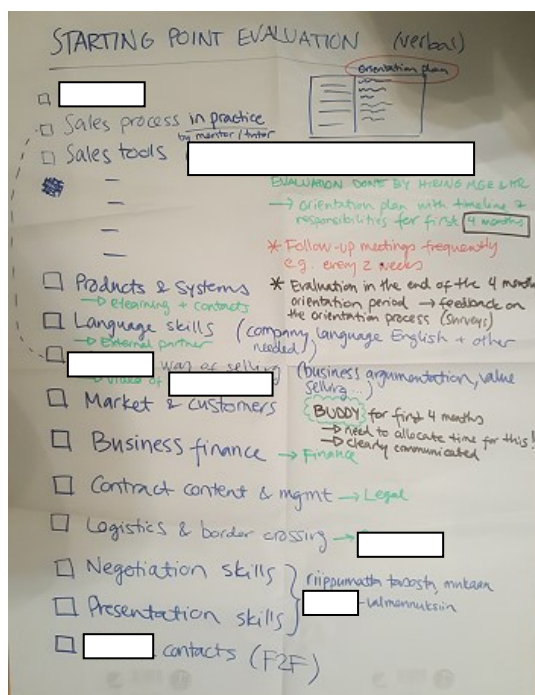 STARTING POINT EVALUATION (verbal)
orientation plan
Sales process in practice
by mentor / tutor
Sales tools
EVALUATION DONE BY HIRING MGE & HR
→ orientation plan with timeline &
responsibilities for first 4 months
* Follow-up meetings frequently
e.g. every 2 weeks
Products & Systems
→ elearning + contacts
* Evaluation in the end of the 4 month
orientation period → feedback on
the orientation process (surveys)
Language skills (company language English + other
needed)
→ External partner
way of selling (business argumentation, value
selling...)
→ value of
Market & customers
BUDDY for first 4 months
→ need to allocate time for this!
→ clearly communicated
Business finance → Finance
Contract content & mgmt → Legal
Logistics & border crossing →
Negotiation skills
Presentation skills
riippumatta tasosta, mukaan
-valmennuksiin
contacts (F2F)